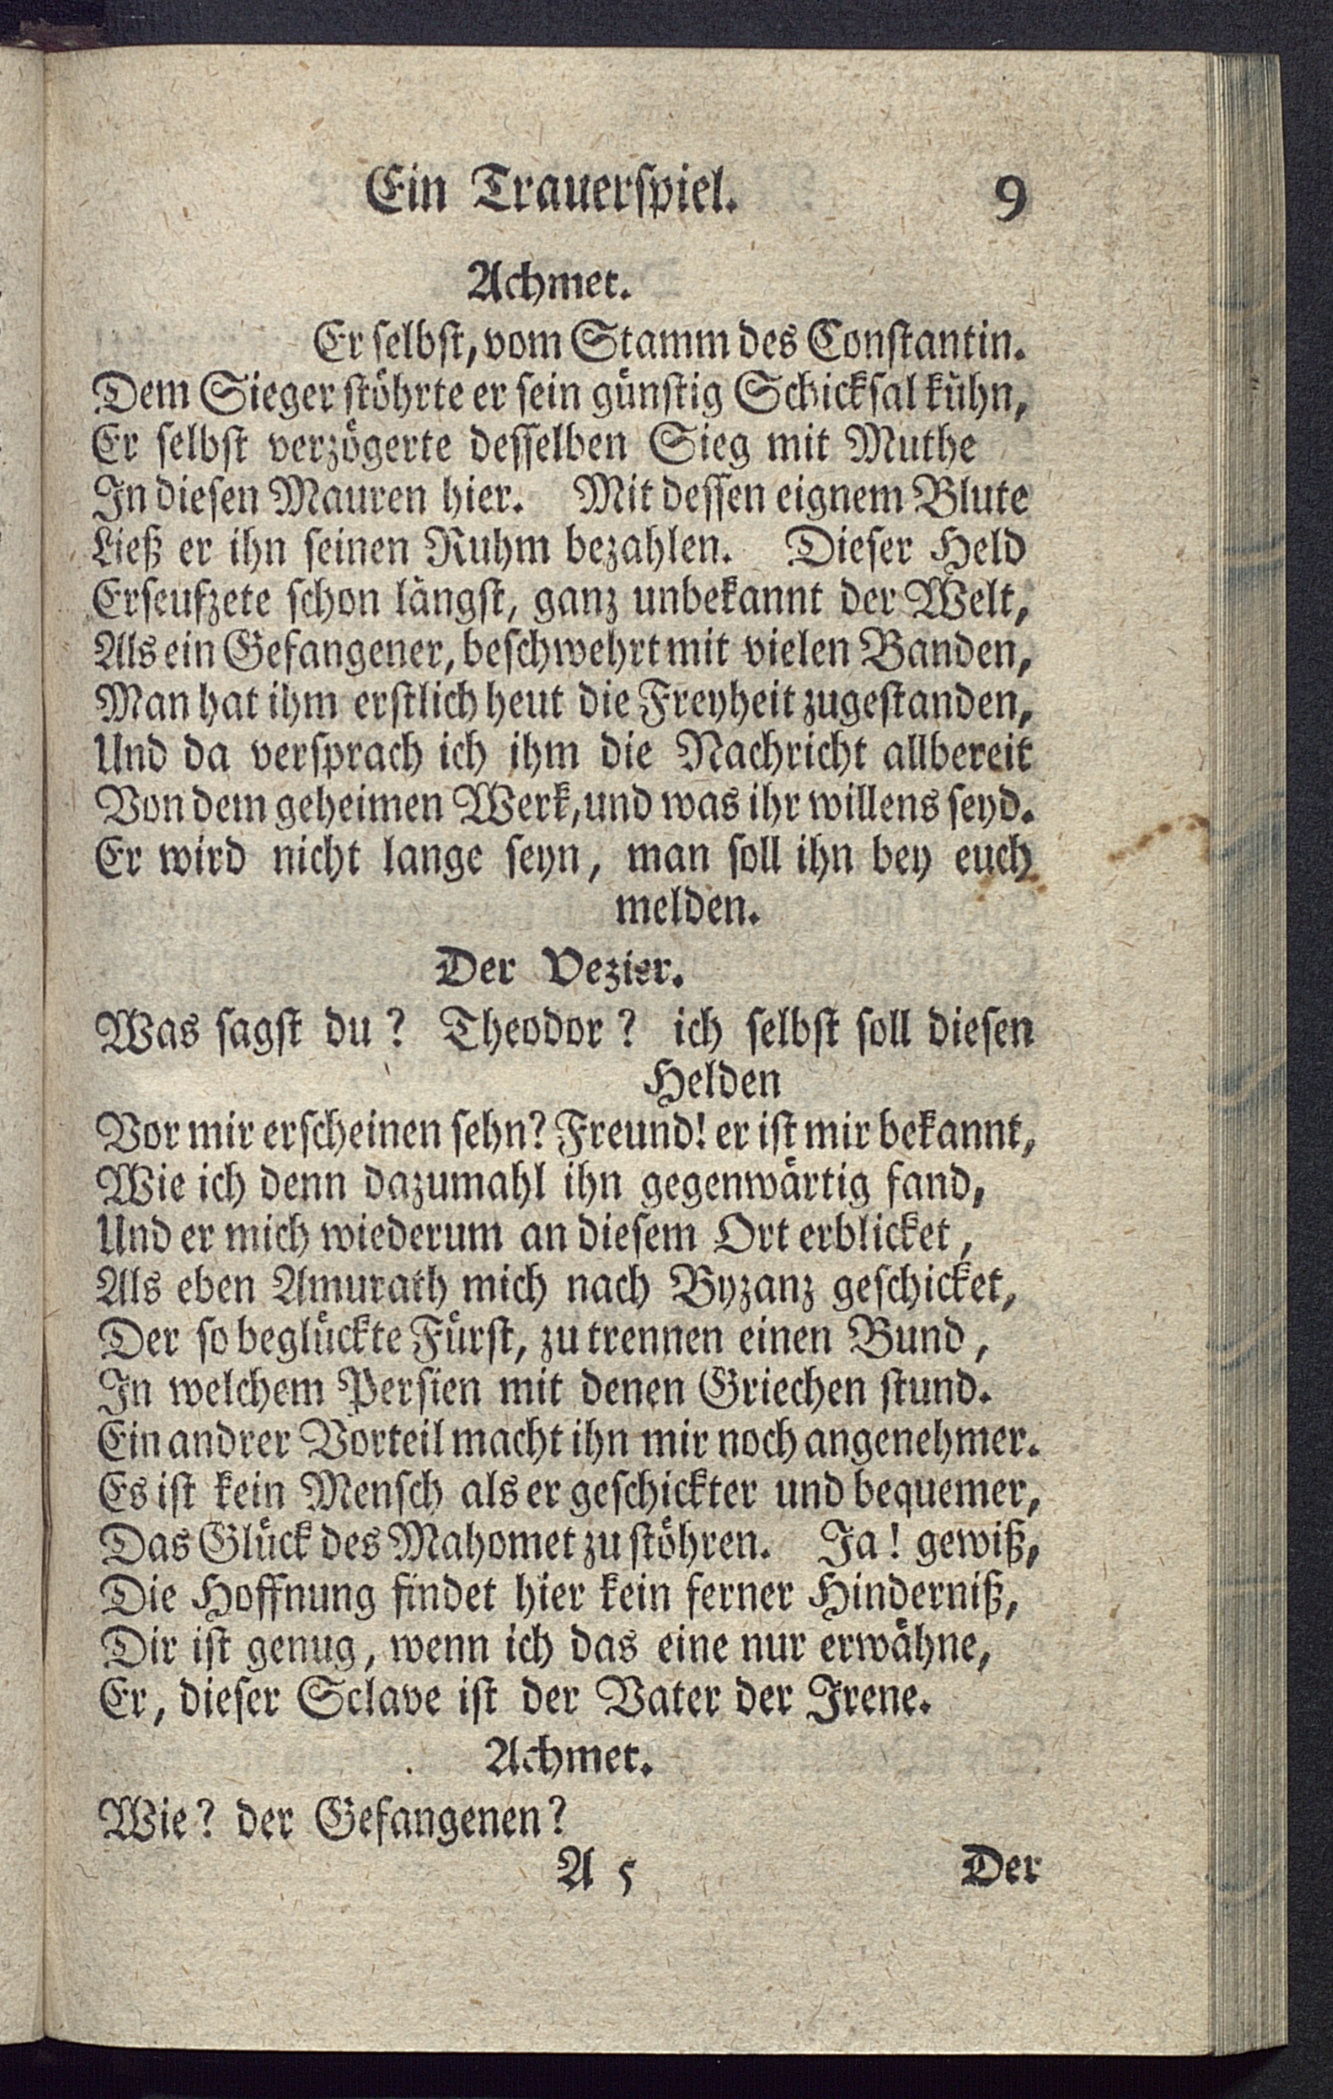 Ein Trauerspiel. 9
Achmet.
Er selbst, vom Stamm des Constantin.
Dem Sieger stöhrte er sein günstig Schicksal kühn,
Er selbst verzögerte desselben Sieg mit Muthe
In diesen Mauren hier. Mit dessen eignem Blute
Ließ er ihn seinen Ruhm bezahlen. Dieser Held
Erseufzete schon längst, ganz unbekannt der Welt,
Als ein Gefangener, beschwehrt mit vielen Banden,
Man hat ihm erstlich heut die Freyheit zugestanden,
Und da versprach ich ihm die Nachricht allbereit
Von dem geheimen Werk, und was ihr willens seyd.
Er wird nicht lange seyn, man soll ihn bey euch
melden.
Der Vezier.
Was sagst du? Theodor? ich selbst soll diesen
Helden
Vor mir erscheinen sehn? Freund! er ist mir bekannt,
Wie ich denn dazumahl ihn gegenwärtig fand,
Und er mich wiederum an diesem Ort erblicket,
Als eben Amurath mich nach Byzanz geschicket,
Der so beglückte Fürst, zu trennen einen Bund,
In welchem Persien mit denen Griechen stund.
Ein andrer Vorteil macht ihn mir noch angenehmer.
Es ist kein Mensch als er geschickter und bequemer,
Das Glück des Mahomet zu stöhren. Ja! gewiß,
Die Hoffnung findet hier kein ferner Hinderniß,
Dir ist genug, wenn ich das eine nur erwähne,
Er, dieser Sclave ist der Vater der Irene.
Achmet.
Wie? der Gefangenen?
A 5 Der